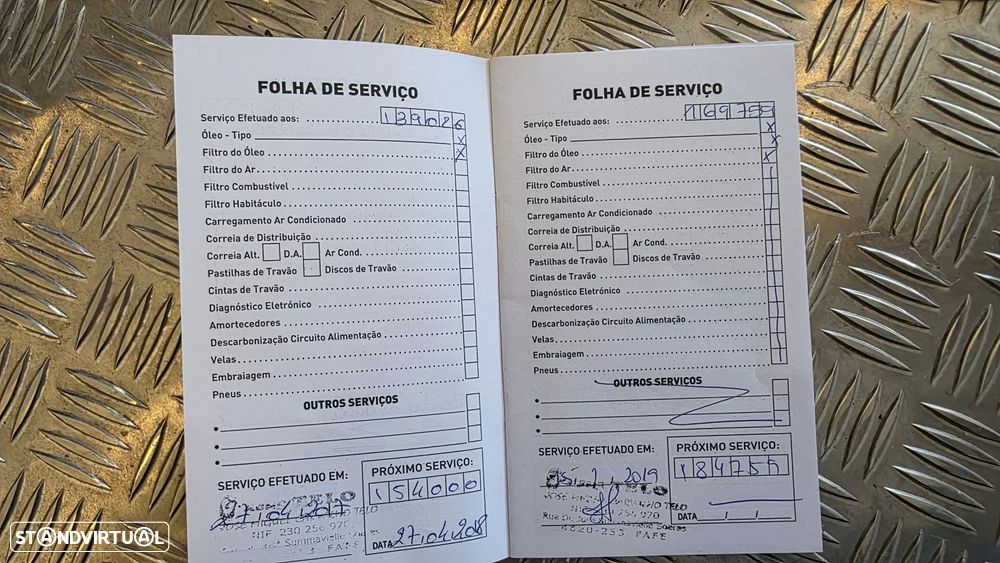 FOLHA DE SERVIÇO
Serviço Efetuado aos: 139026
Óleo - Tipo X
Filtro do Óleo X
Filtro do Ar
Filtro Combustível
Filtro Habitáculo
Carregamento Ar Condicionado
Correia de Distribuição
Correia Alt. D.A. Ar Cond.
Pastilhas de Travão Discos de Travão
Cintas de Travão
Diagnóstico Eletrónico
Amortecedores
Descarbonização Circuito Alimentação
Velas
Embraiagem
Pneus
OUTROS SERVIÇOS
SERVIÇO EFETUADO EM:
27.04.2017
TELO
NIF 230 256 970
FAFE
PRÓXIMO SERVIÇO:
154000
DATA 27.04.2018
FOLHA DE SERVIÇO
Serviço Efetuado aos: 169759
Óleo - Tipo X
Filtro do Óleo X
Filtro do Ar X
Filtro Combustível
Filtro Habitáculo
Carregamento Ar Condicionado
Correia de Distribuição
Correia Alt. D.A. Ar Cond.
Pastilhas de Travão Discos de Travão
Cintas de Travão
Diagnóstico Eletrónico
Amortecedores
Descarbonização Circuito Alimentação
Velas
Embraiagem
Pneus
OUTROS SERVIÇOS
SERVIÇO EFETUADO EM:
2019
TELO
FAFE
PRÓXIMO SERVIÇO:
184759
DATA
STANDVIRTUAL